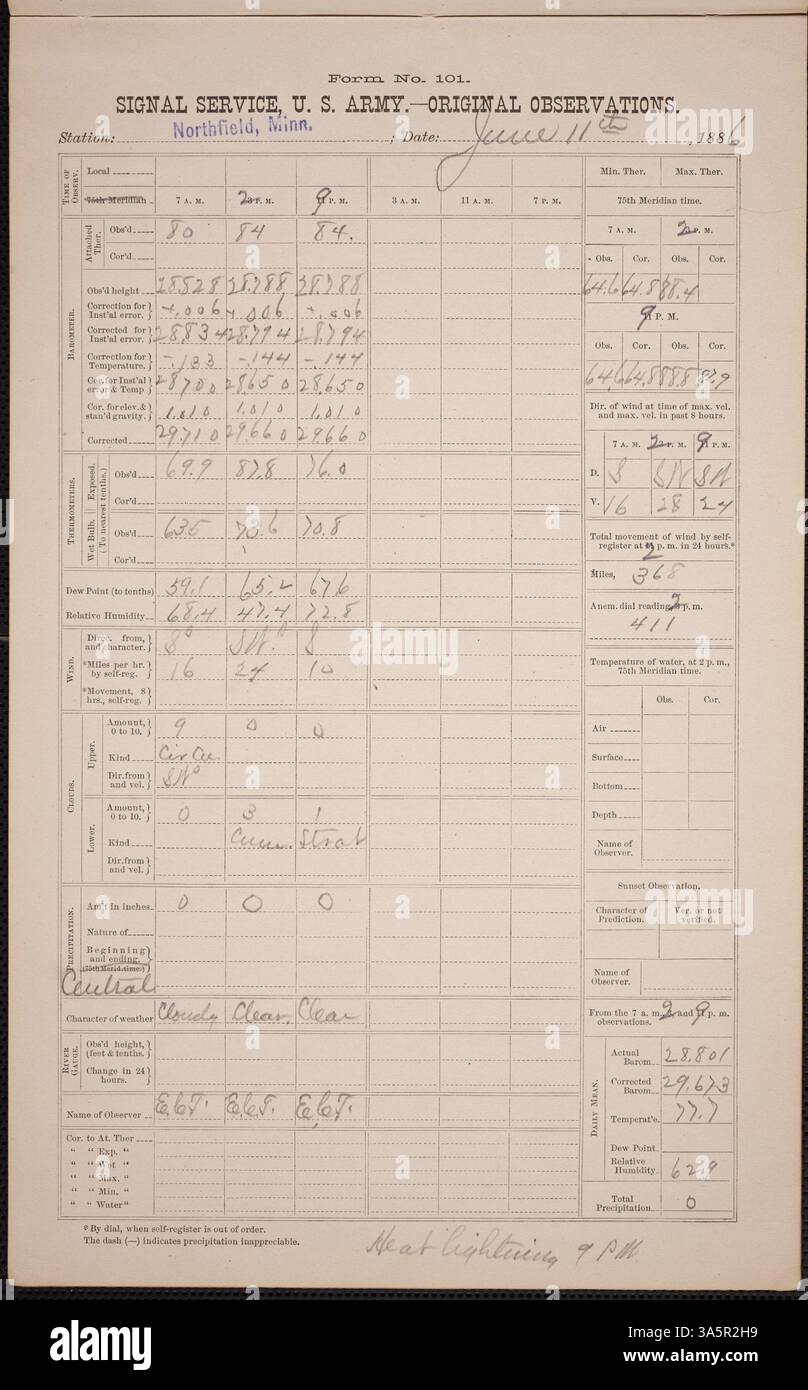 Form No. 101.
SIGNAL SERVICE, U. S. ARMY.—ORIGINAL OBSERVATIONS.
Station: Northfield, Minn. ; Date: June 11th , 1886
TIME OF OBSERV. Local
75th Meridian 7 A. M. 2 P. M. 9 P. M. 3 A. M. 11 A. M. 7 P. M.
BAROMETER.
Attached Ther. Obs'd 80 84 84.
Cor'd
Obs'd height 28.788 28.788
Correction for Inst'al error. +.006 +.006 +.006
Corrected for Inst'al error. 28.834 28.794 28.794
Correction for Temperature. -.133 -.144 -.144
Cor. for Inst'al error & Temp 28700 28650 28.650
Cor. for elev. & stan'd gravity. 1.010 1.010 1.010
Corrected 29.710 29.660 29.660
THERMOMETERS.
Exposed. (To nearest tenths.) Obs'd 69.9 87.8 76.0
Cor'd
Wet Bulb. Obs'd 63.5 70.6 70.8
Cor'd
Dew Point (to tenths) 59.1 65.2 67.6
Relative Humidity 68.4 47.4 72.8
WIND.
Direc. from, and character. S° SW.° S
*Miles per hr. by self-reg. 16 24 10
*Movement, 8 hrs., self-reg.
CLOUDS.
Upper. Amount, 0 to 10. 9 0 0
Kind Cir Cu.
Dir. from and vel. SW°
Lower. Amount, 0 to 10. 0 3 1
Kind Cum. Strat
Dir. from and vel.
PRECIPITATION.
Am't in inches 0 0 0
Nature of
Beginning and ending. (75th Merid. time.)
Central
Character of weather Cloudy Clear. Clear
RIVER GAUGE.
Obs'd height, (feet & tenths.)
Change in 24 hours.
Name of Observer E.C.T. E.C.T. E.C.T.
Cor. to At. Ther
" " Exp. "
" " Wet "
" " Max. "
" " Min. "
" " Water"
* By dial, when self-register is out of order.
The dash (—) indicates precipitation inappreciable.
Heat lightning 9 PM
Min. Ther. Max. Ther.
75th Meridian time.
7 A. M. 2 P. M.
Obs. Cor. Obs. Cor.
64.6 64.8 88.4
9 P. M.
Obs. Cor. Obs. Cor.
64.6 64.8 88.8 87.9
Dir. of wind at time of max. vel. and max. vel. in past 8 hours.
7 A. M. 2 P. M. 9 P. M.
D. S SW SW
V. 16 28 24
Total movement of wind by self-register at 2 p. m. in 24 hours.*
Miles, 368
Anem. dial reading, 2 p. m.
411
Temperature of water, at 2 p. m., 75th Meridian time.
Obs. Cor.
Air
Surface
Bottom
Depth
Name of Observer.
Sunset Observation.
Character of Prediction. Veg. or not verified.
Name of Observer.
From the 7 a. m., 2, and 9 p. m. observations.
DAILY MEAN.
Actual Barom. 28.801
Corrected Barom. 29.673
Temperat'e. 77.7
Dew Point.
Relative Humidity. 62.9
Total Precipitation. 0
alamy
Image ID: 3A5R2H9
www.alamy.com